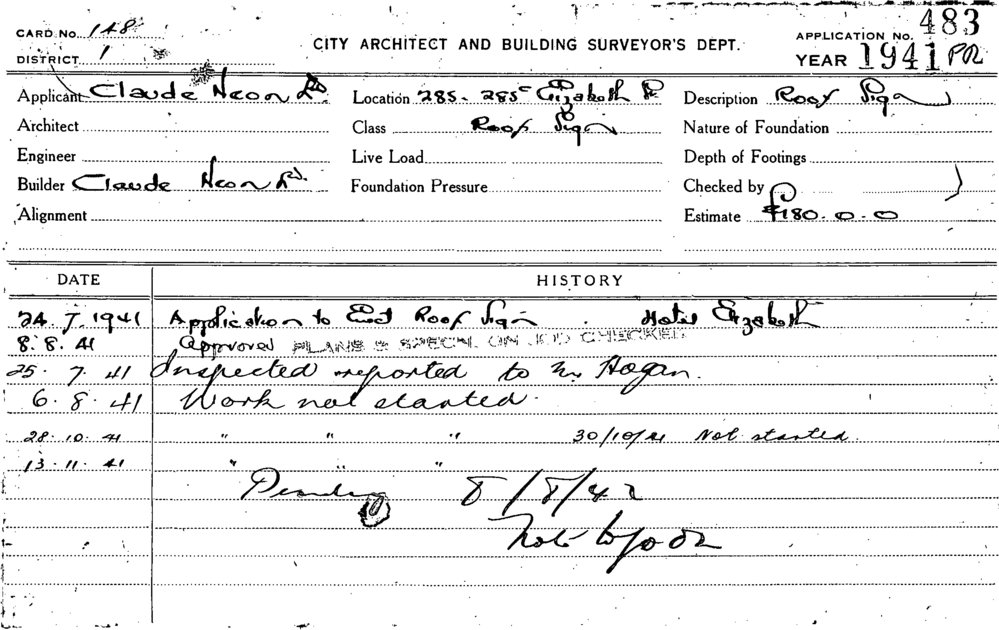 CARD No. 148
DISTRICT 1
CITY ARCHITECT AND BUILDING SURVEYOR'S DEPT.
APPLICATION No. 483
YEAR 1941 PR
Applicant Claude Neon Ld. Location 285-285 Elizabeth St. Description Roof Sign
Architect Class Roof Sign Nature of Foundation
Engineer Live Load Depth of Footings
Builder Claude Neon Ld. Foundation Pressure Checked by
Alignment Estimate £180.0.0
DATE HISTORY
24.7.1941 Application to Erect Roof Sign. Hotel Elizabeth
8.8.41 Approved PLANS & SPECN. ON JOB CHECKED
25.7.41 Inspected reported to Mr Hogan.
6.8.41 Work not started.
28.10.41 " " " 30/10/41 Not started.
13.11.41 " " "
Pending 8/8/42